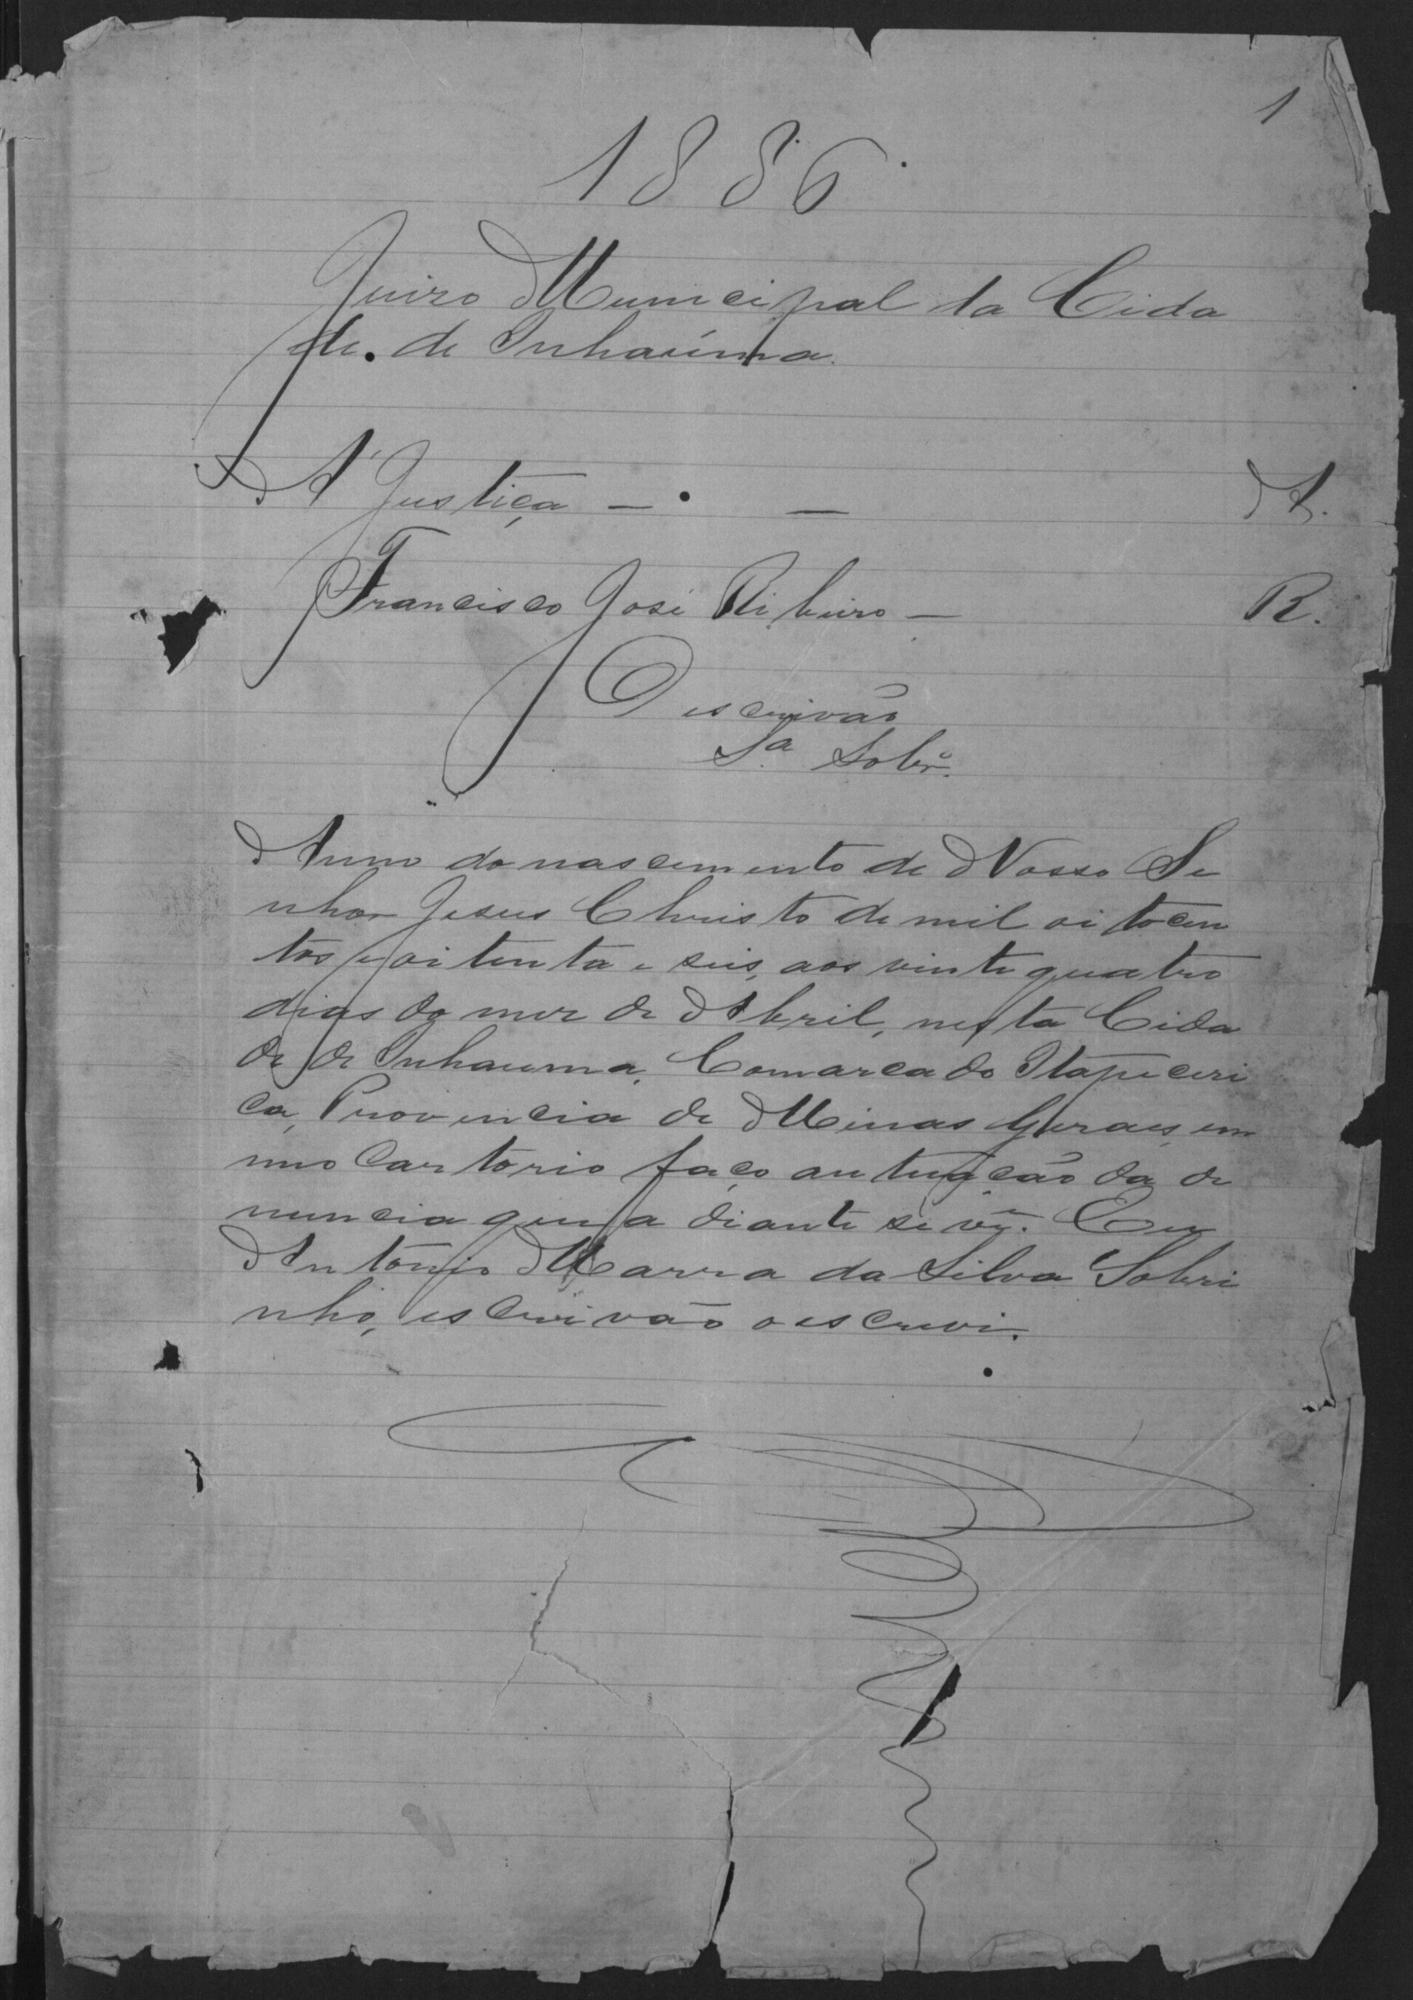 1
1886.
Juizo Municipal da Cida
de de Inhaúma.
A Justiça — — A.
Francisco José Ribeiro — R.
O escrivão
Sa. Sobro.
Anno do nascimento de Nosso Se
nhor Jesus Christo de mil oitocen
tos e oitenta e seis, aos vinte quatro
dias do mez de Abril, nesta Cida
de de Inhauma, Comarca do Itapeceri
ca, Provincia de Minas Geraes, em
meo Cartorio faço autuação da de
nuncia que a diante se vê. Eu
Antônio Marra da Silva Sobri
nho, escrivão o escrevi.